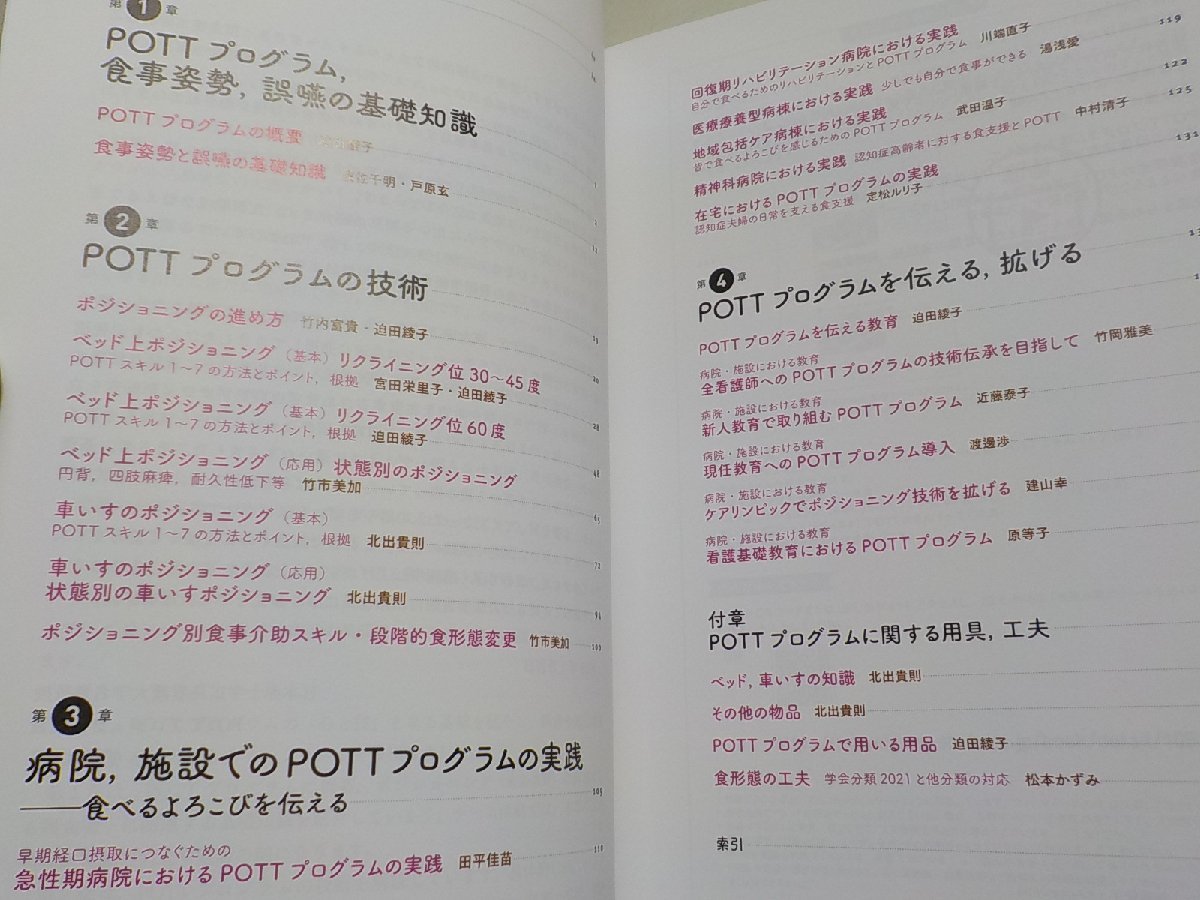 第 1 章
POTT プログラム,
食事姿勢, 誤嚥の基礎知識
POTT プログラムの概要
食事姿勢と誤嚥の基礎知識 千明・戸原玄
第 2 章
POTT プログラムの技術
ポジショニングの進め方 竹内富貴・迫田綾子
ベッド上ポジショニング（基本）リクライニング位 30〜45 度
POTT スキル 1〜7 の方法とポイント, 根拠 宮田栄里子・迫田綾子
ベッド上ポジショニング（基本）リクライニング位 60 度
POTT スキル 1〜7 の方法とポイント, 根拠 迫田綾子
ベッド上ポジショニング（応用）状態別のポジショニング
円背, 四肢麻痺, 耐久性低下等 竹市美加
車いすのポジショニング（基本）
POTT スキル 1〜7 の方法とポイント, 根拠 北出貴則
車いすのポジショニング（応用）
状態別の車いすポジショニング 北出貴則
ポジショニング別食事介助スキル・段階的食形態変更 竹市美加
第 3 章
病院, 施設での POTT プログラムの実践
――食べるよろこびを伝える 105
早期経口摂取につなぐための
急性期病院における POTT プログラムの実践 田平佳苗 110
回復期リハビリテーション病院における実践
自分で食べるためのリハビリテーションと POTT プログラム 川端直子 119
医療療養型病棟における実践 少しでも自分で食事ができる 湯浅愛 122
地域包括ケア病棟における実践
皆で食べるよろこびを感じるための POTT プログラム 武田温子 125
精神科病院における実践 認知症高齢者に対する食支援と POTT 中村清子
在宅における POTT プログラムの実践 131
認知症夫婦の日常を支える食支援 定松ルリ子
第 4 章
POTT プログラムを伝える, 拡げる
POTT プログラムを伝える教育 迫田綾子
病院・施設における教育
全看護師への POTT プログラムの技術伝承を目指して 竹岡雅美
病院・施設における教育
新人教育で取り組む POTT プログラム 近藤泰子
病院・施設における教育
現任教育への POTT プログラム導入 渡邊渉
病院・施設における教育
ケアリンピックでポジショニング技術を拡げる 建山幸
病院・施設における教育
看護基礎教育における POTT プログラム 原等子
付章
POTT プログラムに関する用具, 工夫
ベッド, 車いすの知識 北出貴則
その他の物品 北出貴則
POTT プログラムで用いる用品 迫田綾子
食形態の工夫 学会分類 2021 と他分類の対応 松本かずみ
索引